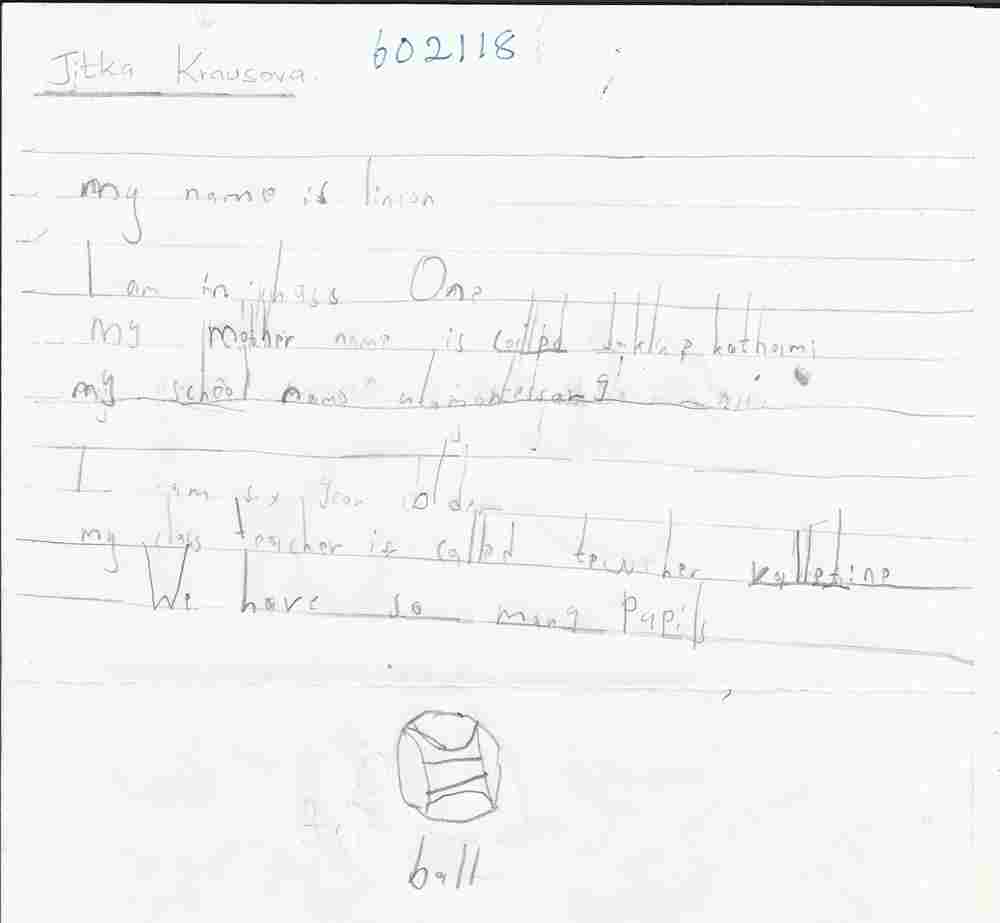 Jitka Krausova. 602118
my name is linion
I am in class One
My mother name is called kathomi
my school name
I am six year old
my class teacher is called teacher kalletine
We have so many Papils
ball